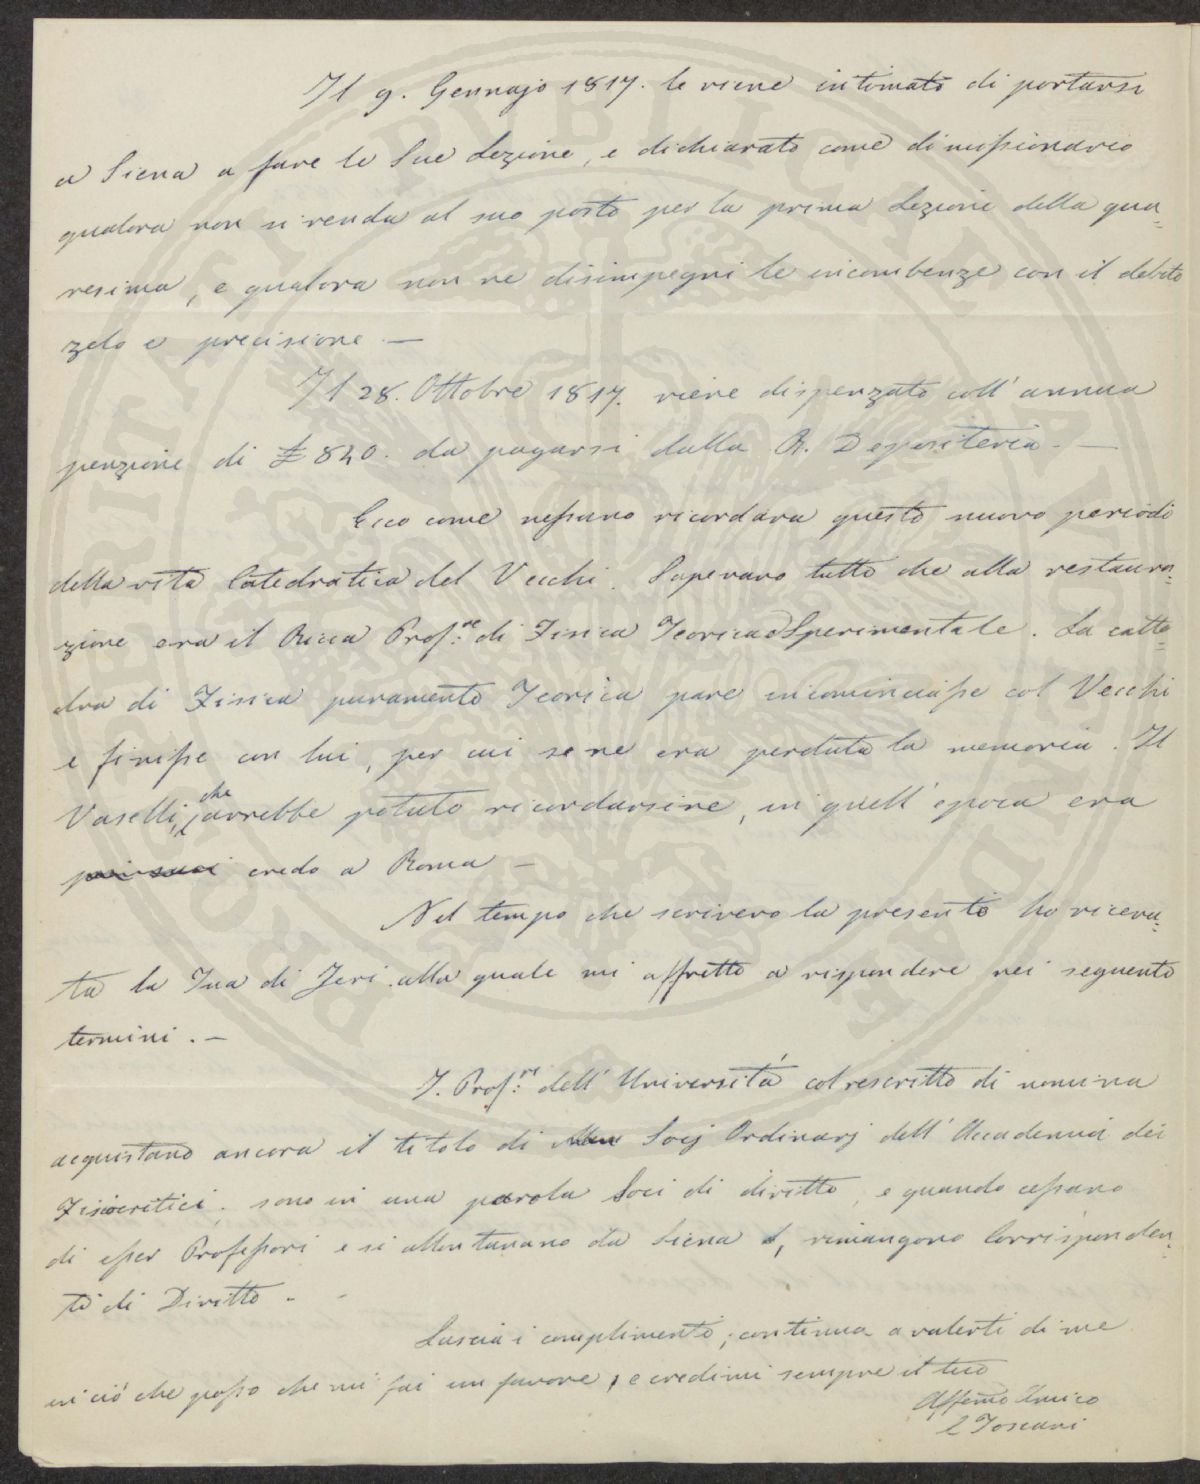 Il 9. Gennajo 1817. le viene intimato di portarsi
a Siena a fare le Sue Lezione, e dichiarato come dimissionario
qualora non si renda al suo posto per la prima Lezione della qua-
resima, e qualora non ne disimpegni le incombenze con il debito
zelo e precisione. —
Il 28. Ottobre 1817. viene dispenzato coll' annua
penzione di £ 840. da pagarsi dalla R. Depositeria. —
Ecco come nessuno ricordava questo nuovo periodo
della vita Catedratica del Vecchi. Sapevano tutti che alla restaura-
zione era il Ricca Prof.re di Fisica Teorica e Sperimentale. La catte-
dra di Fisica puramente Teorica pare incominciasse col Vecchi
e finisse con lui, per cui se ne era perduta la memoria. Il
Vaselli, che avrebbe potuto ricordarsene, in quell' epoca era
credo a Roma —
Nel tempo che scrivevo la presente ho ricevu-
ta la Tua di Jeri alla quale mi affretto a rispondere nei seguenti
termini. —
I. Prof.ri dell' Università col rescritto di nomina
acquistano ancora il titolo di Socj Ordinarj dell' Accademia dei
Fisiocritici, sono in una parola Soci di diritto, e quando cessano
di esser Professori e si allontanano da Siena, rimangono Corrisponden-
ti di Diritto. -
Lascia i complimenti, continua a valerti di me
in ciò che posso che mi fai un favore, e credimi sempre il tuo
Affemo Amico
L Toscani